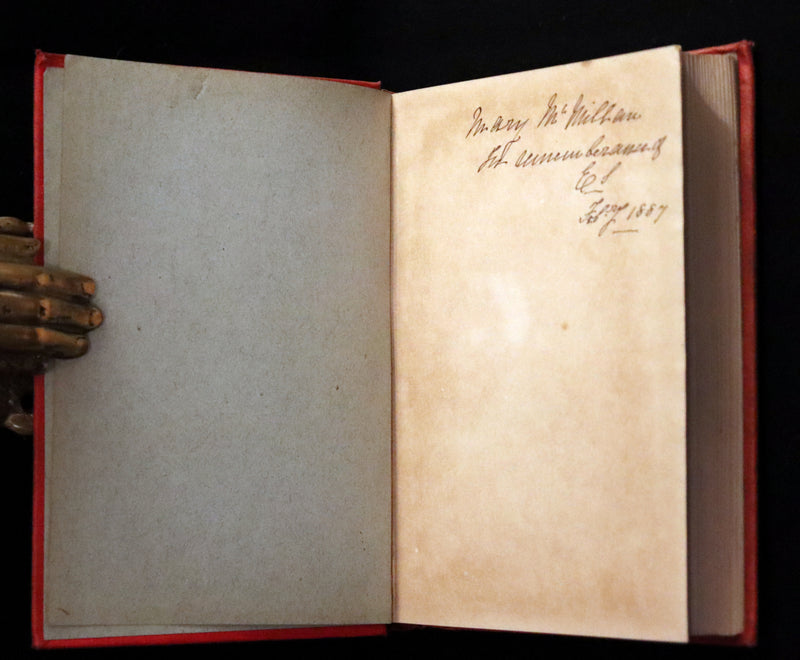 Mary McMillan
In remembrance of
ES
Feby 1887